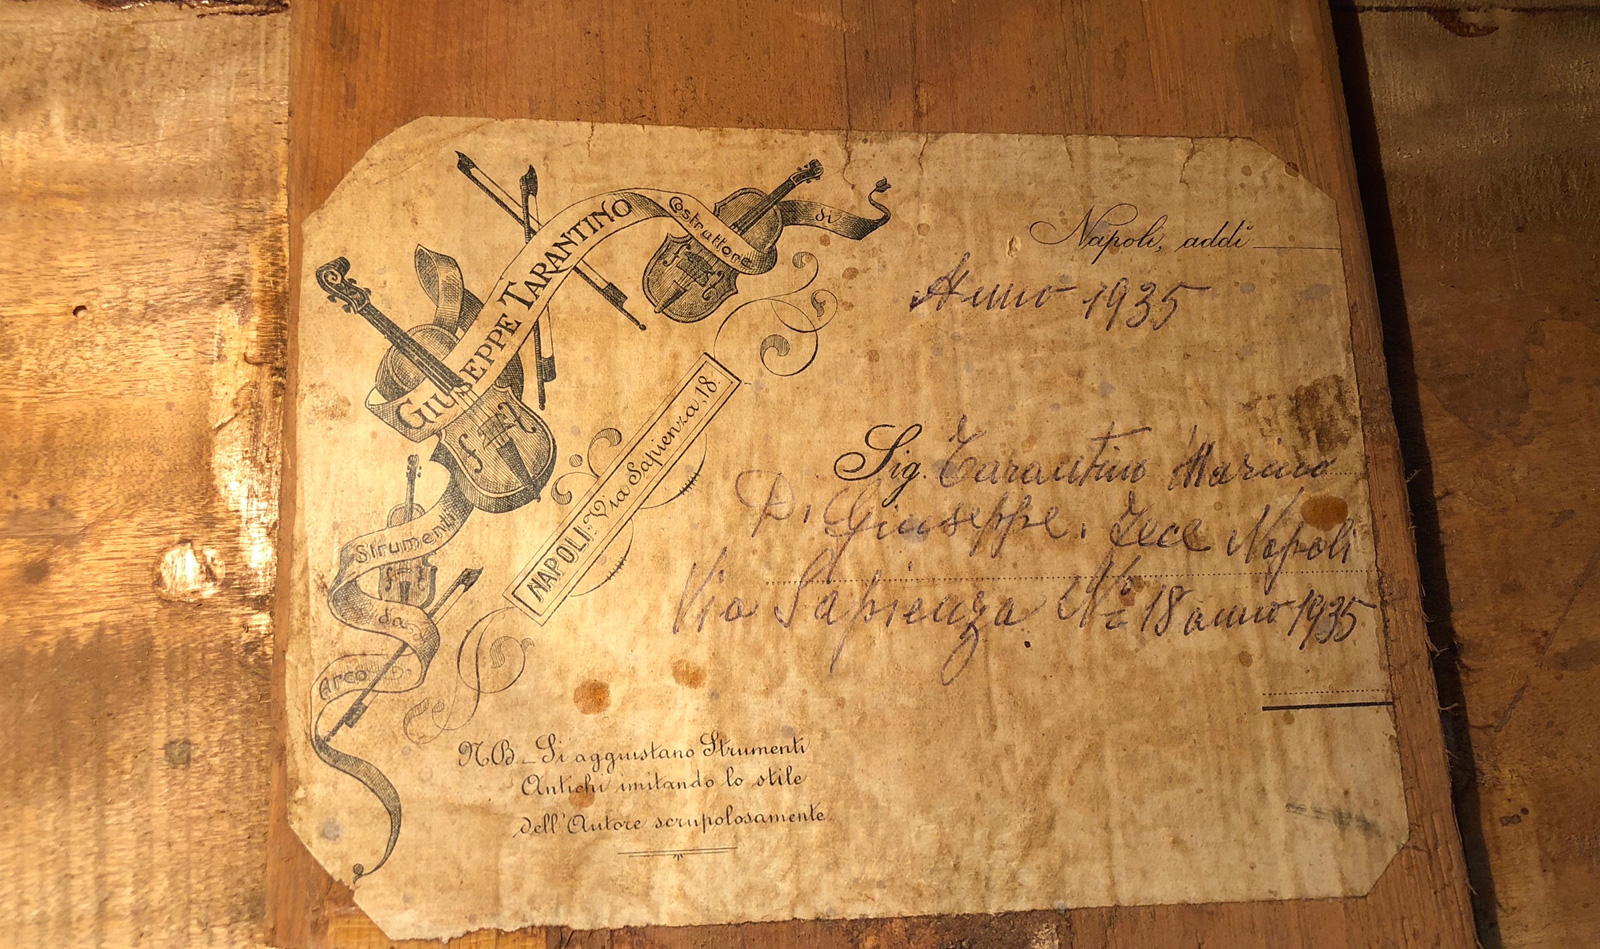 GIUSEPPE TARANTINO
Costruttore
di
Strumenti
da
Arco
NAPOLI: Via Sapienza, 18.
Napoli, addi
Anno 1935
Sig. Tarantino Marino
Di Giuseppe. Fece Napoli
Via Sapienza No 18 anno 1935
NB _ Si aggiustano Strumenti
Antichi imitando lo stile
dell'Autore scrupolosamente